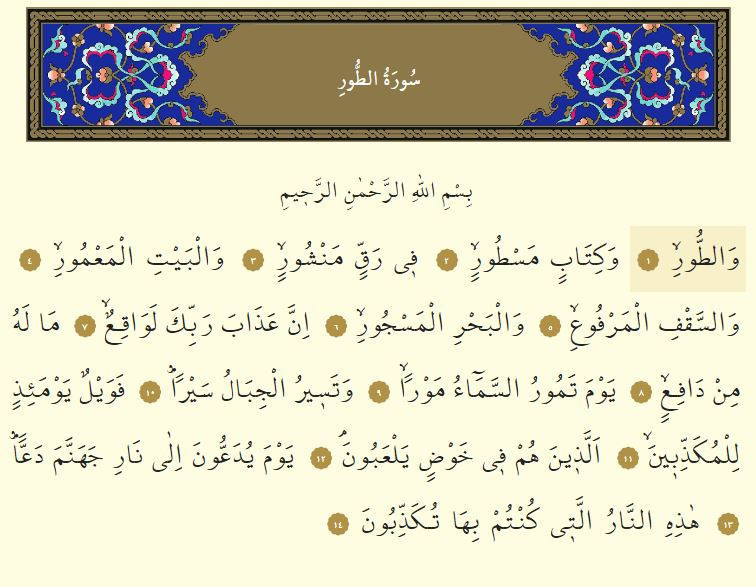 سُورَةُ الطُّورِ
بِسْمِ اللّٰهِ الرَّحْمٰنِ الرَّح۪يمِ
وَالطُّورِۙ ١ وَكِتَابٍ مَسْطُورٍۙ ٢ ف۪ي رَقٍّ مَنْشُورٍۙ ٣ وَالْبَيْتِ الْمَعْمُورِۙ ٤
وَالسَّقْفِ الْمَرْفُوعِۙ ٥ وَالْبَحْرِ الْمَسْجُورِۙ ٦ اِنَّ عَذَابَ رَبِّكَ لَوَاقِعٌۙ ٧ مَا لَهُ
مِنْ دَافِعٍۙ ٨ يَوْمَ تَمُورُ السَّمَٓاءُ مَوْراًۙ ٩ وَتَس۪يرُ الْجِبَالُ سَيْراًۜ ١٠ فَوَيْلٌ يَوْمَئِذٍ
لِلْمُكَذِّب۪ينَۙ ١١ اَلَّذ۪ينَ هُمْ ف۪ي خَوْضٍ يَلْعَبُونَۢ ١٢ يَوْمَ يُدَعُّونَ اِلٰى نَارِ جَهَنَّمَ دَعاًّۜ
١٣ هٰذِهِ النَّارُ الَّت۪ي كُنْتُمْ بِهَا تُكَذِّبُونَ ١٤